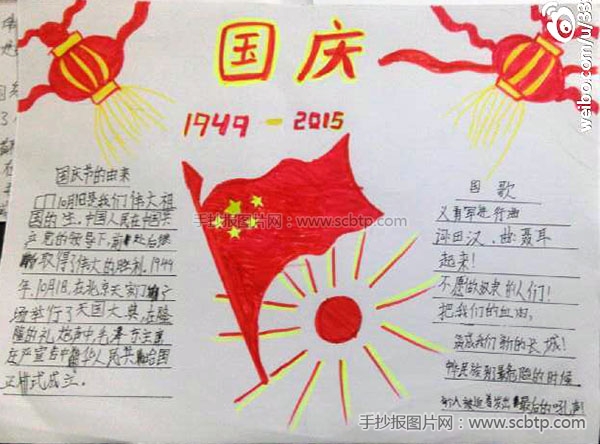 国庆
1949-2015
国庆节的由来
10月1日是我们伟大祖
国的生.中国人民在中国共
产党的领导下,前赴后继
取得了伟大的胜利.1949
年、10月1日,在北京天安门
场举行了天国大典,在隆
隆的礼炮声中,毛泽东主席
庄严宣告中华人民共和国
正式成立.
国歌
义勇军进行曲
词田汉、曲:聂耳
起来!
不愿做奴隶的人们!
把我们的血肉,
筑成我们新的长城!
民族到最危险的时候
人被迫着发出最后的吼声
手抄报图片网·www.scbtp.com
手抄报图片网·www.scbtp.com
weibo.com/u/33